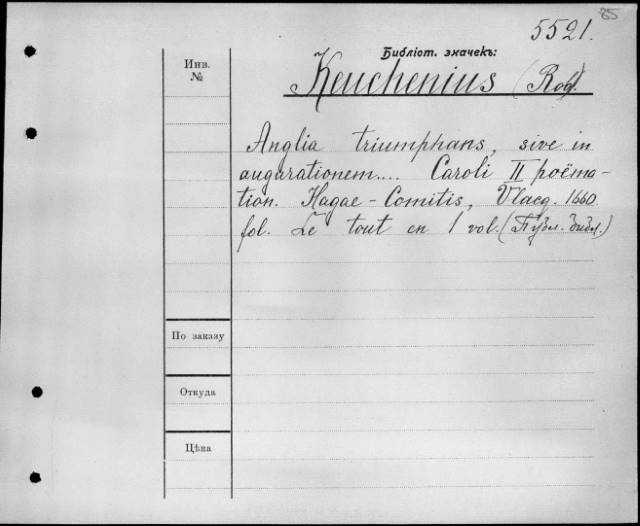 85
5521.
Библіот. значекъ:
Инв.
№
Keuchenius (Rob).
Anglia triumphans, sive in
augurationem.... Caroli II poëma-
tion. Hagae-Comitis, Vlacq. 1660.
fol. Le tout en 1 vol. (Публ. библ.)
По заказу
Откуда
Цѣна